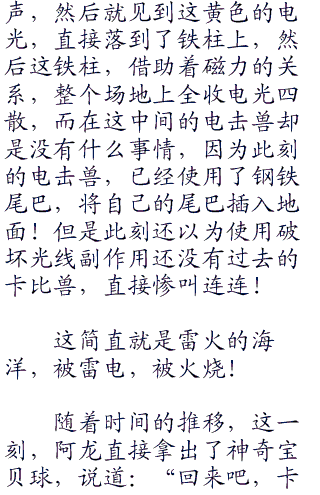 声，然后就见到这黄色的电
光，直接落到了铁柱上，然
后这铁柱，借助着磁力的关
系，整个场地上全收电光四
散，而在这中间的电击兽却
是没有什么事情，因为此刻
的电击兽，已经使用了钢铁
尾巴，将自己的尾巴插入地
面！但是此刻还以为使用破
坏光线副作用还没有过去的
卡比兽，直接惨叫连连！
这简直就是雷火的海
洋，被雷电，被火烧！
随着时间的推移，这一
刻，阿龙直接拿出了神奇宝
贝球，说道：“回来吧，卡